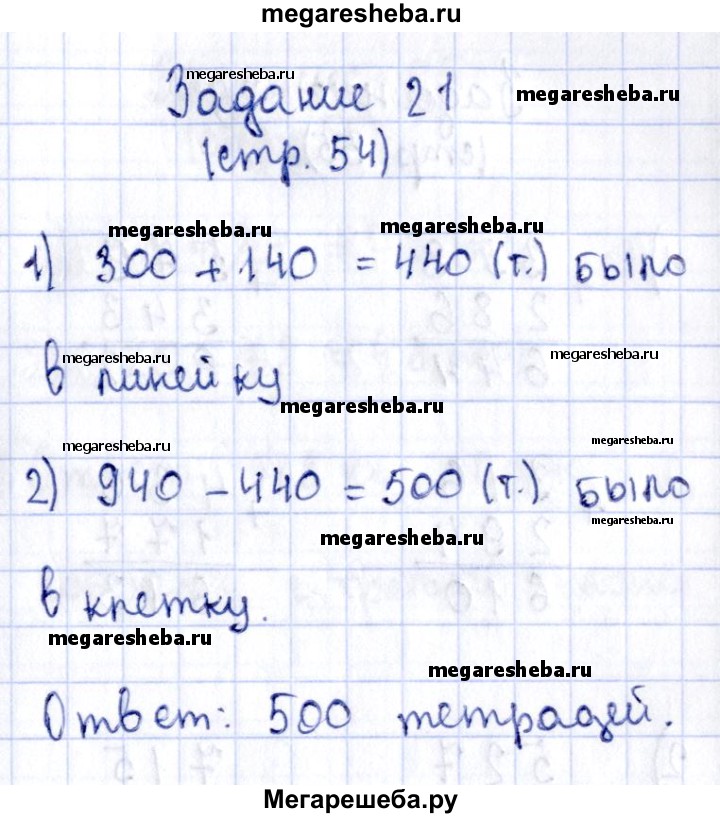 megaresheba.ru
megaresheba.ru
Задание 21
megaresheba.ru
(стр. 54)
megaresheba.ru
megaresheba.ru
1) 300 + 140 = 440 (т.) было
megaresheba.ru
megaresheba.ru
в линейку
megaresheba.ru
megaresheba.ru
megaresheba.ru
2) 940 - 440 = 500 (т.) было
megaresheba.ru
megaresheba.ru
в клетку.
megaresheba.ru
megaresheba.ru
Ответ: 500 тетрадей.
Мегарешеба.ру